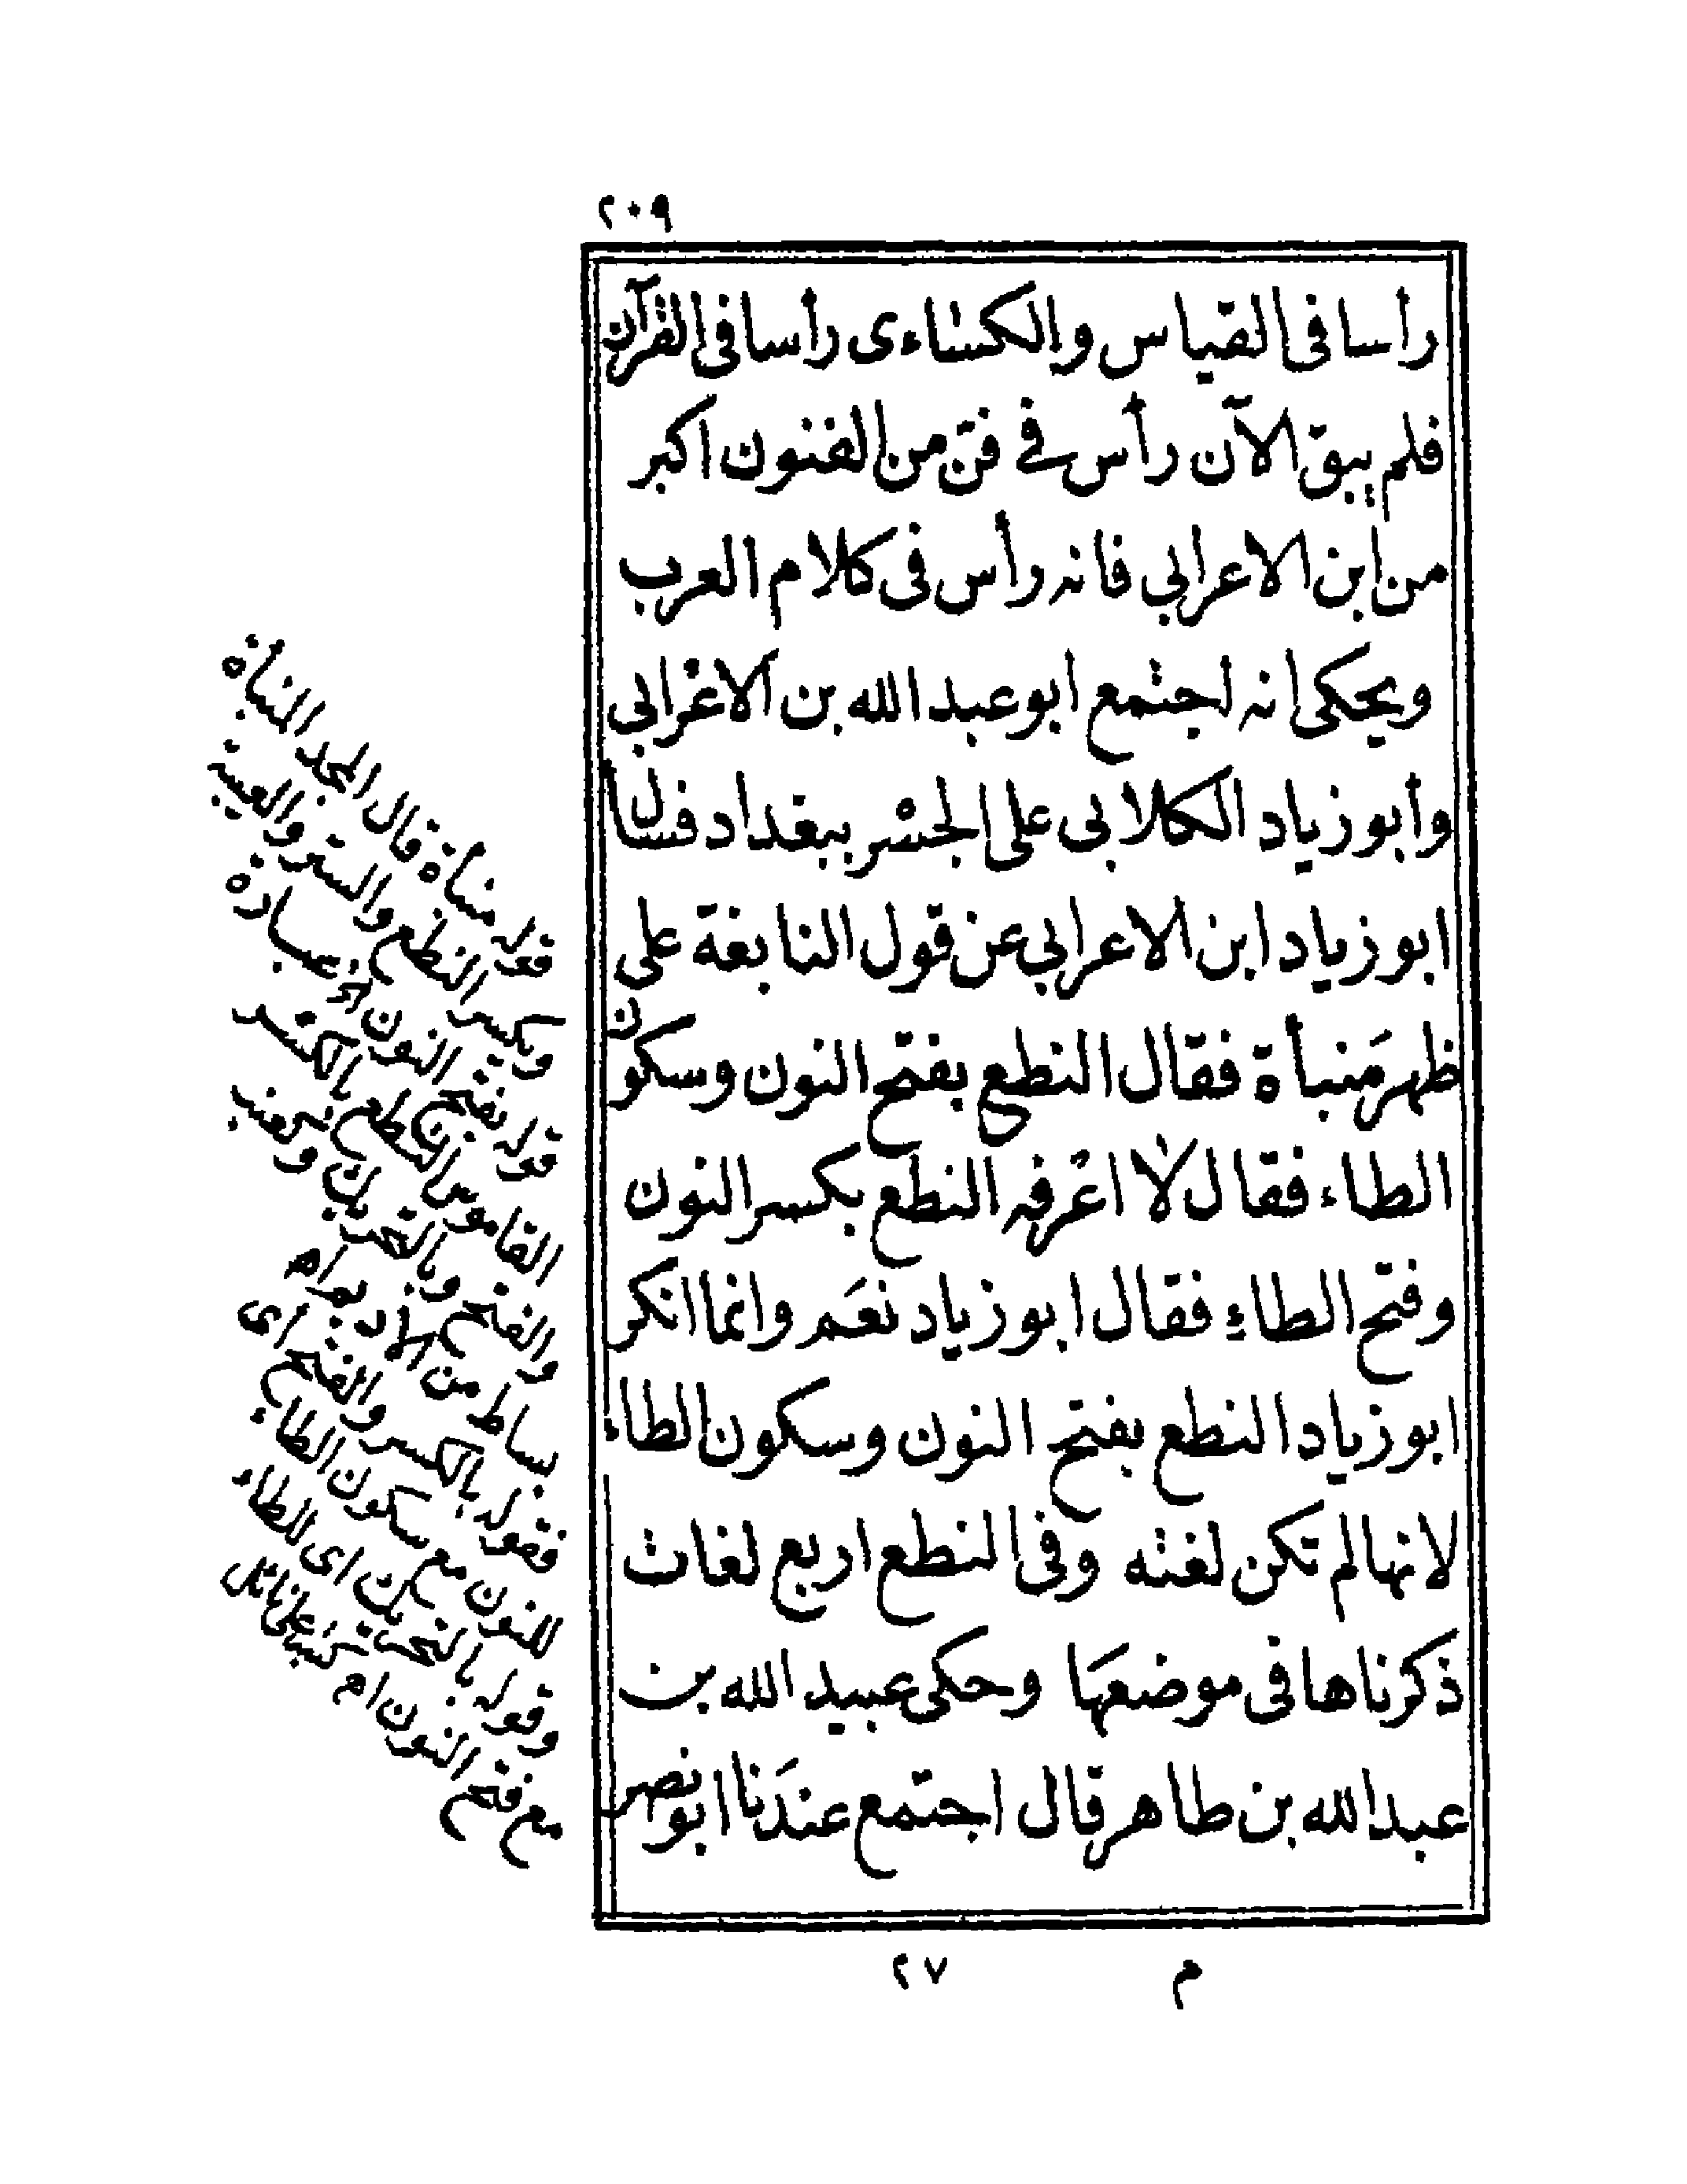 ٢٠٩
رأسا فى القياس والكساءى رأسا فى القرآن
فلم يبق الآن رأس فے فنّ من الفنون اكبر
من ابن الاعرابي فانه رأس فى كلام العرب
ويحكى انه اجتمع ابو عبد الله بن الاعرابي
وأبو زياد الكلابى على الجسر ببغداد فسأل
ابو زياد ابن الاعرابي عن قول النابغة على
ظهر مَنبأة فقال النطع بفتح النون وسكون
الطاء فقال لا اعرفه النطع بكسر النون
وفتح الطاء فقال ابو زياد نعَم وانما انكر
ابو زياد النطع بفتح النون وسكون الطاء
لانها لم تكن لغته وفى النطع اربع لغات
ذكرناها فى موضعهَا وحكى عبيد الله بن
عبد الله بن طاهر قال اجتمع عندَنا ابو نصر
قوله مبناة قال المجد المبناة
ويكسر النطع والستر والعيبة
قوله بفتح النون الخ عبارة
القاموس النطع بالكسر
والفتح وبالتحريك وكعنب
بساط من الاديم اه
فقوله بالكسر والفتح اى
للنون مع سكون الطاء
وقوله بالتحريك اى للطاء
مع فتح النون اه
م ٢٧